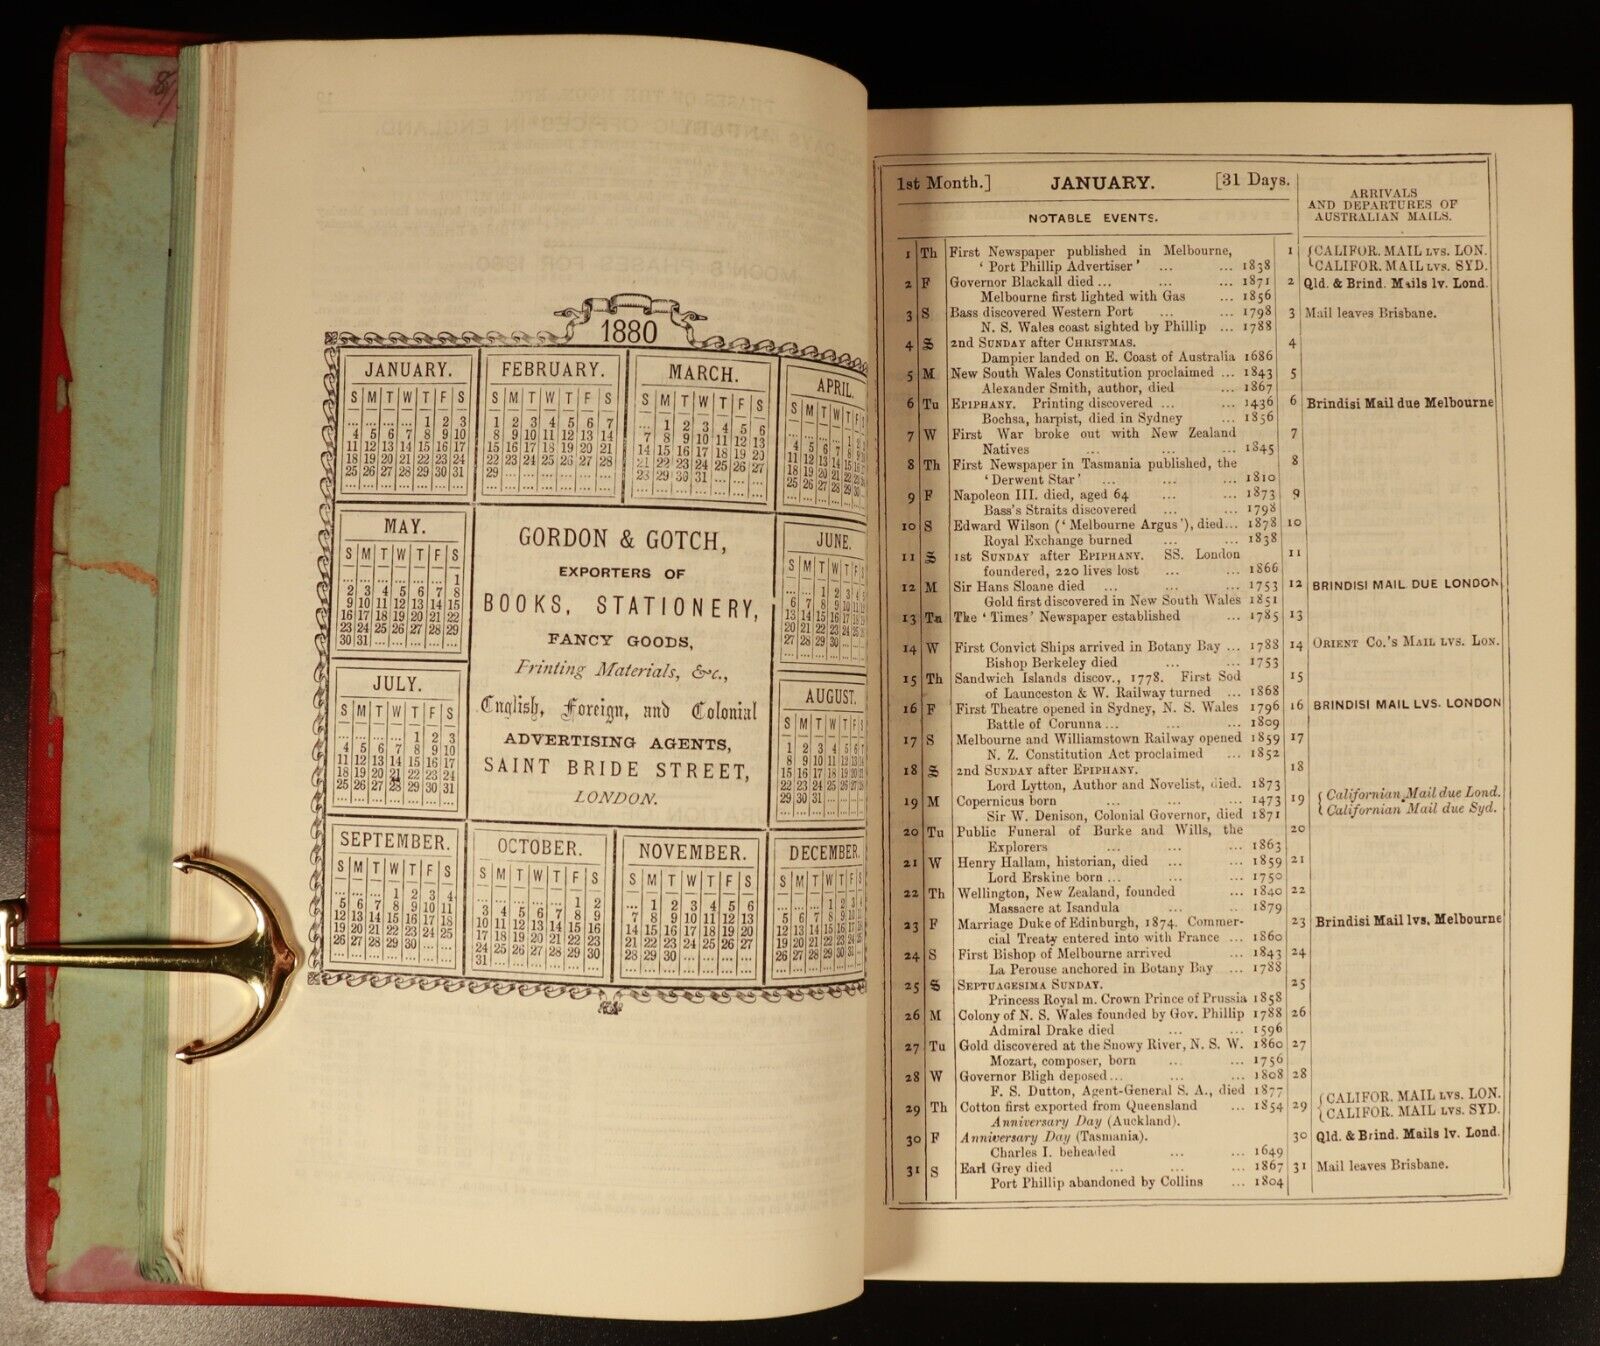 1880
JANUARY.
S M T W T F S
... ... ... ... 1 2 3
4 5 6 7 8 9 10
11 12 13 14 15 16 17
18 19 20 21 22 23 24
25 26 27 28 29 30 31
... ... ... ... ... ... ...
FEBRUARY.
S M T W T F S
1 2 3 4 5 6 7
8 9 10 11 12 13 14
15 16 17 18 19 20 21
22 23 24 25 26 27 28
29 ... ... ... ... ... ...
... ... ... ... ... ... ...
MARCH.
S M T W T F S
... 1 2 3 4 5 6
7 8 9 10 11 12 13
14 15 16 17 18 19 20
21 22 23 24 25 26 27
28 29 30 31 ... ... ...
... ... ... ... ... ... ...
APRIL.
S M T W T F S
... ... ... ... 1
4 5 6 7 8
11 12 13 14 15
18 19 20 21 22
25 26 27 28 29 30
MAY.
S M T W T F S
... ... ... ... ... ... 1
2 3 4 5 6 7 8
9 10 11 12 13 14 15
16 17 18 19 20 21 22
23 24 25 26 27 28 29
30 31 ... ... ... ... ...
GORDON & GOTCH,
EXPORTERS OF
BOOKS, STATIONERY,
FANCY GOODS,
Printing Materials, &c.,
English, Foreign, and Colonial
ADVERTISING AGENTS,
SAINT BRIDE STREET,
LONDON.
JUNE.
S M T W T F S
... ... 1 2 3 4 5
6 7 8 9 10 11
13 14 15 16 17 18
20 21 22 23 24 25 26
27 28 29 30 ... ... ...
JULY.
S M T W T F S
... ... ... ... 1 2 3
4 5 6 7 8 9 10
11 12 13 14 15 16 17
18 19 20 21 22 23 24
25 26 27 28 29 30 31
... ... ... ... ... ... ...
AUGUST.
S M T W T F S
1 2 3 4 5 6 7
8 9 10 11 12 13 14
15 16 17 18 19 20 21
22 23 24 25 26 27 28
29 30 31 ... ... ... ...
SEPTEMBER.
S M T W T F S
... ... ... 1 2 3 4
5 6 7 8 9 10 11
12 13 14 15 16 17 18
19 20 21 22 23 24 25
26 27 28 29 30 ... ...
... ... ... ... ... ... ...
OCTOBER.
S M T W T F S
... ... ... ... ... 1 2
3 4 5 6 7 8 9
10 11 12 13 14 15 16
17 18 19 20 21 22 23
24 25 26 27 28 29 30
31 ... ... ... ... ... ...
NOVEMBER.
S M T W T F S
... 1 2 3 4 5 6
7 8 9 10 11 12 13
14 15 16 17 18 19 20
21 22 23 24 25 26 27
28 29 30 ... ... ... ...
... ... ... ... ... ... ...
DECEMBER.
S M T W T F S
... ... ... 1 2 3 4
5 6 7 8 9 10
12 13 14 15 16 17
19 20 21 22 23 24
26 27 28 29 30 31 ...
1st Month.] JANUARY. [31 Days.
ARRIVALS
AND DEPARTURES OF
AUSTRALIAN MAILS.
NOTABLE EVENTS.
1 Th First Newspaper published in Melbourne, 1 {CALIFOR. MAIL LVS. LON.
‘Port Phillip Advertiser’ ... ... 1838 CALIFOR. MAIL LVS. SYD.
2 F Governor Blackall died ... ... ... 1871 2 Qld. & Brind. Mails lv. Lond.
Melbourne first lighted with Gas ... 1856
3 S Bass discovered Western Port ... ... 1798 3 Mail leaves Brisbane.
N. S. Wales coast sighted by Phillip ... 1788
4 S 2nd SUNDAY after CHRISTMAS. 4
Dampier landed on E. Coast of Australia 1686
5 M New South Wales Constitution proclaimed ... 1843 5
Alexander Smith, author, died ... 1867
6 Tu EPIPHANY. Printing discovered ... ... 1436 6 Brindisi Mail due Melbourne
Bochsa, harpist, died in Sydney ... 1856
7 W First War broke out with New Zealand 7
Natives ... ... ... 1845
8 Th First Newspaper in Tasmania published, the 8
‘Derwent Star’ ... ... ... 1810
9 F Napoleon III. died, aged 64 ... ... 1873 9
Bass's Straits discovered ... ... 1798
10 S Edward Wilson (‘Melbourne Argus’), died... 1878 10
Royal Exchange burned ... ... 1838
11 S 1st SUNDAY after EPIPHANY. SS. London 11
foundered, 220 lives lost ... ... 1866
12 M Sir Hans Sloane died ... ... ... 1753 12 BRINDISI MAIL DUE LONDON
Gold first discovered in New South Wales 1851
13 Tu The ‘Times’ Newspaper established ... 1785 13
14 W First Convict Ships arrived in Botany Bay ... 1788 14 ORIENT CO.'S MAIL LVS. LON.
Bishop Berkeley died ... ... 1753
15 Th Sandwich Islands discov., 1778. First Sod 15
of Launceston & W. Railway turned ... 1868
16 F First Theatre opened in Sydney, N. S. Wales 1796 16 BRINDISI MAIL LVS. LONDON
Battle of Corunna ... ... ... 1809
17 S Melbourne and Williamstown Railway opened 1859 17
N. Z. Constitution Act proclaimed ... 1852
18 S 2nd SUNDAY after EPIPHANY. 18
Lord Lytton, Author and Novelist, died. 1873
19 M Copernicus born ... ... ... 1473 19 {Californian Mail due Lond.
Sir W. Denison, Colonial Governor, died 1871 Californian Mail due Syd.
20 Tu Public Funeral of Burke and Wills, the 20
Explorers ... ... ... 1863
21 W Henry Hallam, historian, died ... ... 1859 21
Lord Erskine born ... ... ... 1750
22 Th Wellington, New Zealand, founded ... 1840 22
Massacre at Isandula ... ... 1879
23 F Marriage Duke of Edinburgh, 1874. Commer- 23 Brindisi Mail lvs. Melbourne
cial Treaty entered into with France ... 1860
24 S First Bishop of Melbourne arrived ... 1843 24
La Perouse anchored in Botany Bay ... 1788
25 S SEPTUAGESIMA SUNDAY. 25
Princess Royal m. Crown Prince of Prussia 1858
26 M Colony of N. S. Wales founded by Gov. Phillip 1788 26
Admiral Drake died ... ... 1596
27 Tu Gold discovered at the Snowy River, N. S. W. 1860 27
Mozart, composer, born ... ... 1756
28 W Governor Bligh deposed ... ... ... 1808 28
F. S. Dutton, Agent-General S. A., died 1877
29 Th Cotton first exported from Queensland ... 1854 29 {CALIFOR. MAIL LVS. LON.
Anniversary Day (Auckland). CALIFOR. MAIL LVS. SYD.
30 F Anniversary Day (Tasmania). 30 Qld. & Brind. Mails lv. Lond.
Charles I. beheaded ... ... 1649
31 S Earl Grey died ... ... ... 1867 31 Mail leaves Brisbane.
Port Phillip abandoned by Collins ... 1804